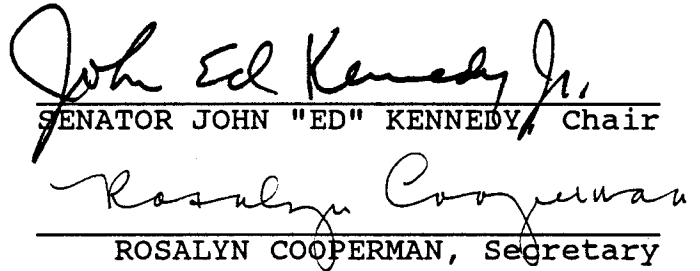 John Ed Kennedy Jr.
SENATOR JOHN "ED" KENNEDY, Chair
Rosalyn Cooperman
ROSALYN COOPERMAN, Secretary